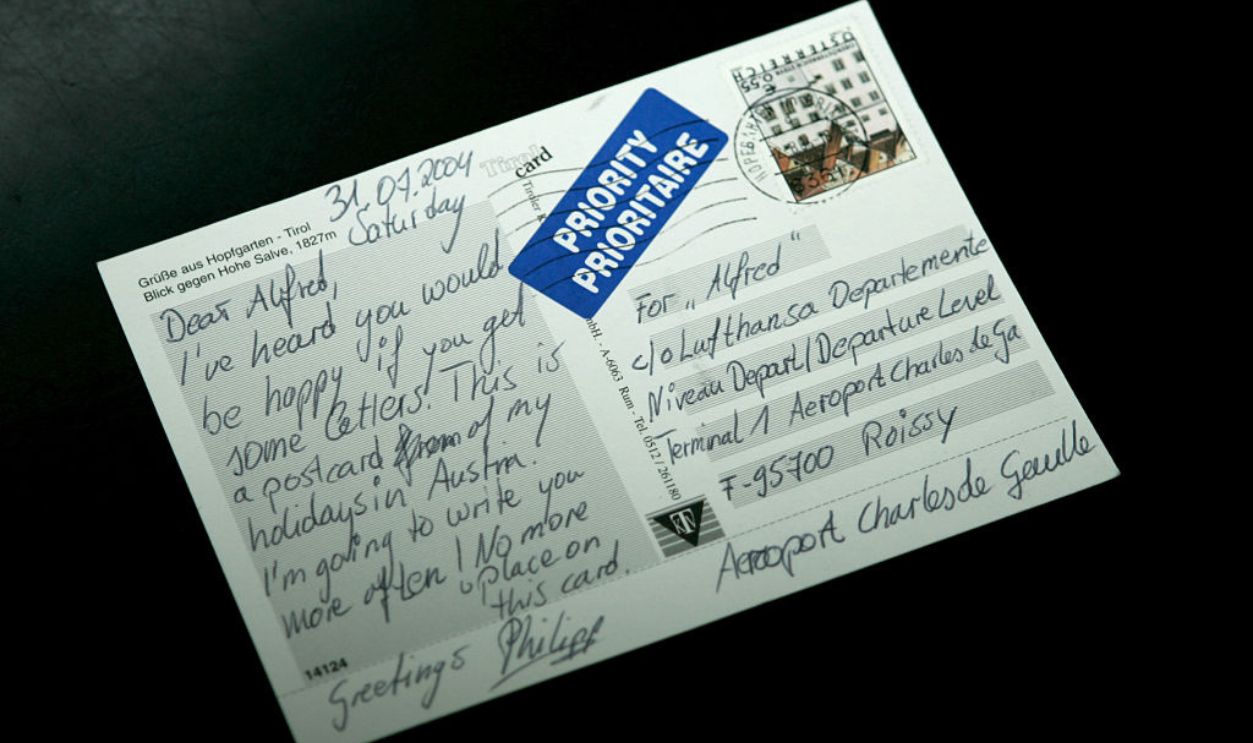 31.07.2004
Saturday
Grüße aus Hopfgarten - Tirol
Blick gegen Hohe Salve, 1827m
Dear Alfred,
I've heard you would
be happy if you get
some letters. This is
a postcard of my
holidays in Austria.
I'm going to write you
more often! No more
place on
this card.
Greetings Philipp
14124
Tirol
card
Tiroler
mbH. - A-6063 Rum - Tel. 0512 / 261180
PRIORITY
PRIORITAIRE
ÖSTERREICH
€0,55
For „Alfred“
c/o Lufthansa Departemente
Niveau Depart/Departure Level
Terminal 1 Aeroport Charles de Ga
F-95700 Roissy
Aeroport Charles de Gaulle